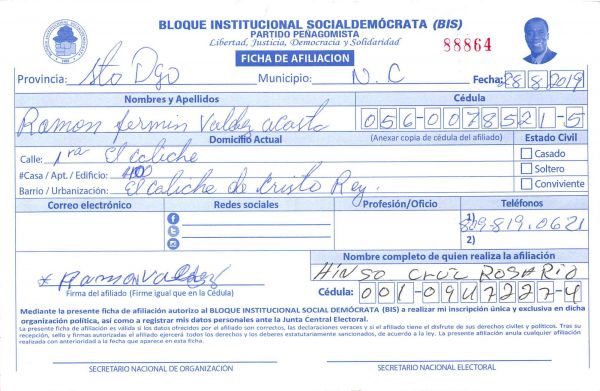 BLOQUE INSTITUCIONAL SOCIALDEMÓCRATA (BIS)
PARTIDO PEÑAGOMISTA
Libertad, Justicia, Democracia y Solidaridad
88864
FICHA DE AFILIACION
Provincia: Sto Dgo Municipio: N.C Fecha: 28/8/2019
Nombres y Apellidos Cédula
Ramon fermin Valdez acosta 056-0078521-5
Domicilio Actual (Anexar copia de cédula del afiliado) Estado Civil
Calle: 1ra El caliche Casado
#Casa / Apt. / Edificio: Soltero
Barrio / Urbanización: El Caliche de Cristo Rey. Conviviente
Correo electrónico Redes sociales Profesión/Oficio Teléfonos
1) 809-819.0621
2)
Nombre completo de quien realiza la afiliación
* Ramon Valdez CRUZ ROSARIO
Firma del afiliado (Firme igual que en la Cédula) Cédula: 001-0947227-4
Mediante la presente ficha de afiliación autorizo al BLOQUE INSTITUCIONAL SOCIAL DEMÓCRATA (BIS) a realizar mi inscripción única y exclusiva en dicha
organización política, así como a registrar mis datos personales ante la Junta Central Electoral.
La presente ficha de afiliación es válida si los datos ofrecidos por el afiliado son correctos, las declaraciones veraces y si el afiliado tiene el disfrute de sus derechos civiles y políticos. Tras su
recepción, sello y firmas autorizadas el afiliado ejercerá todos los derechos y los deberes estatutariamente sancionados, de acuerdo a la ley. La presente afiliación anula cualquier afiliación
realizada con anterioridad a la fecha que aparece en esta ficha.
SECRETARIO NACIONAL DE ORGANIZACIÓN SECRETARIO NACIONAL ELECTORAL